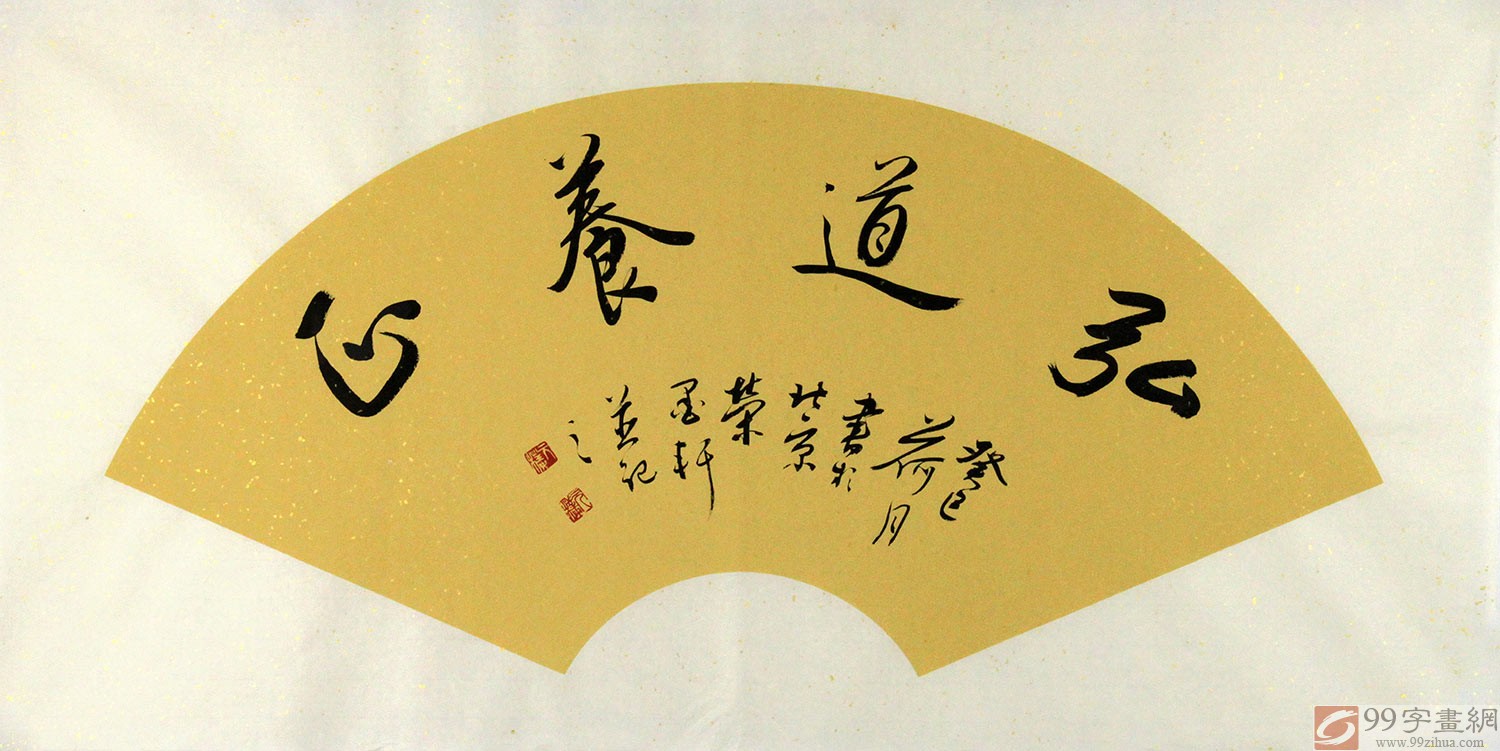 弘道養心
癸巳
荷月
書於
北京
榮
墨軒
並記
之
99字畫網
www.99zihua.com